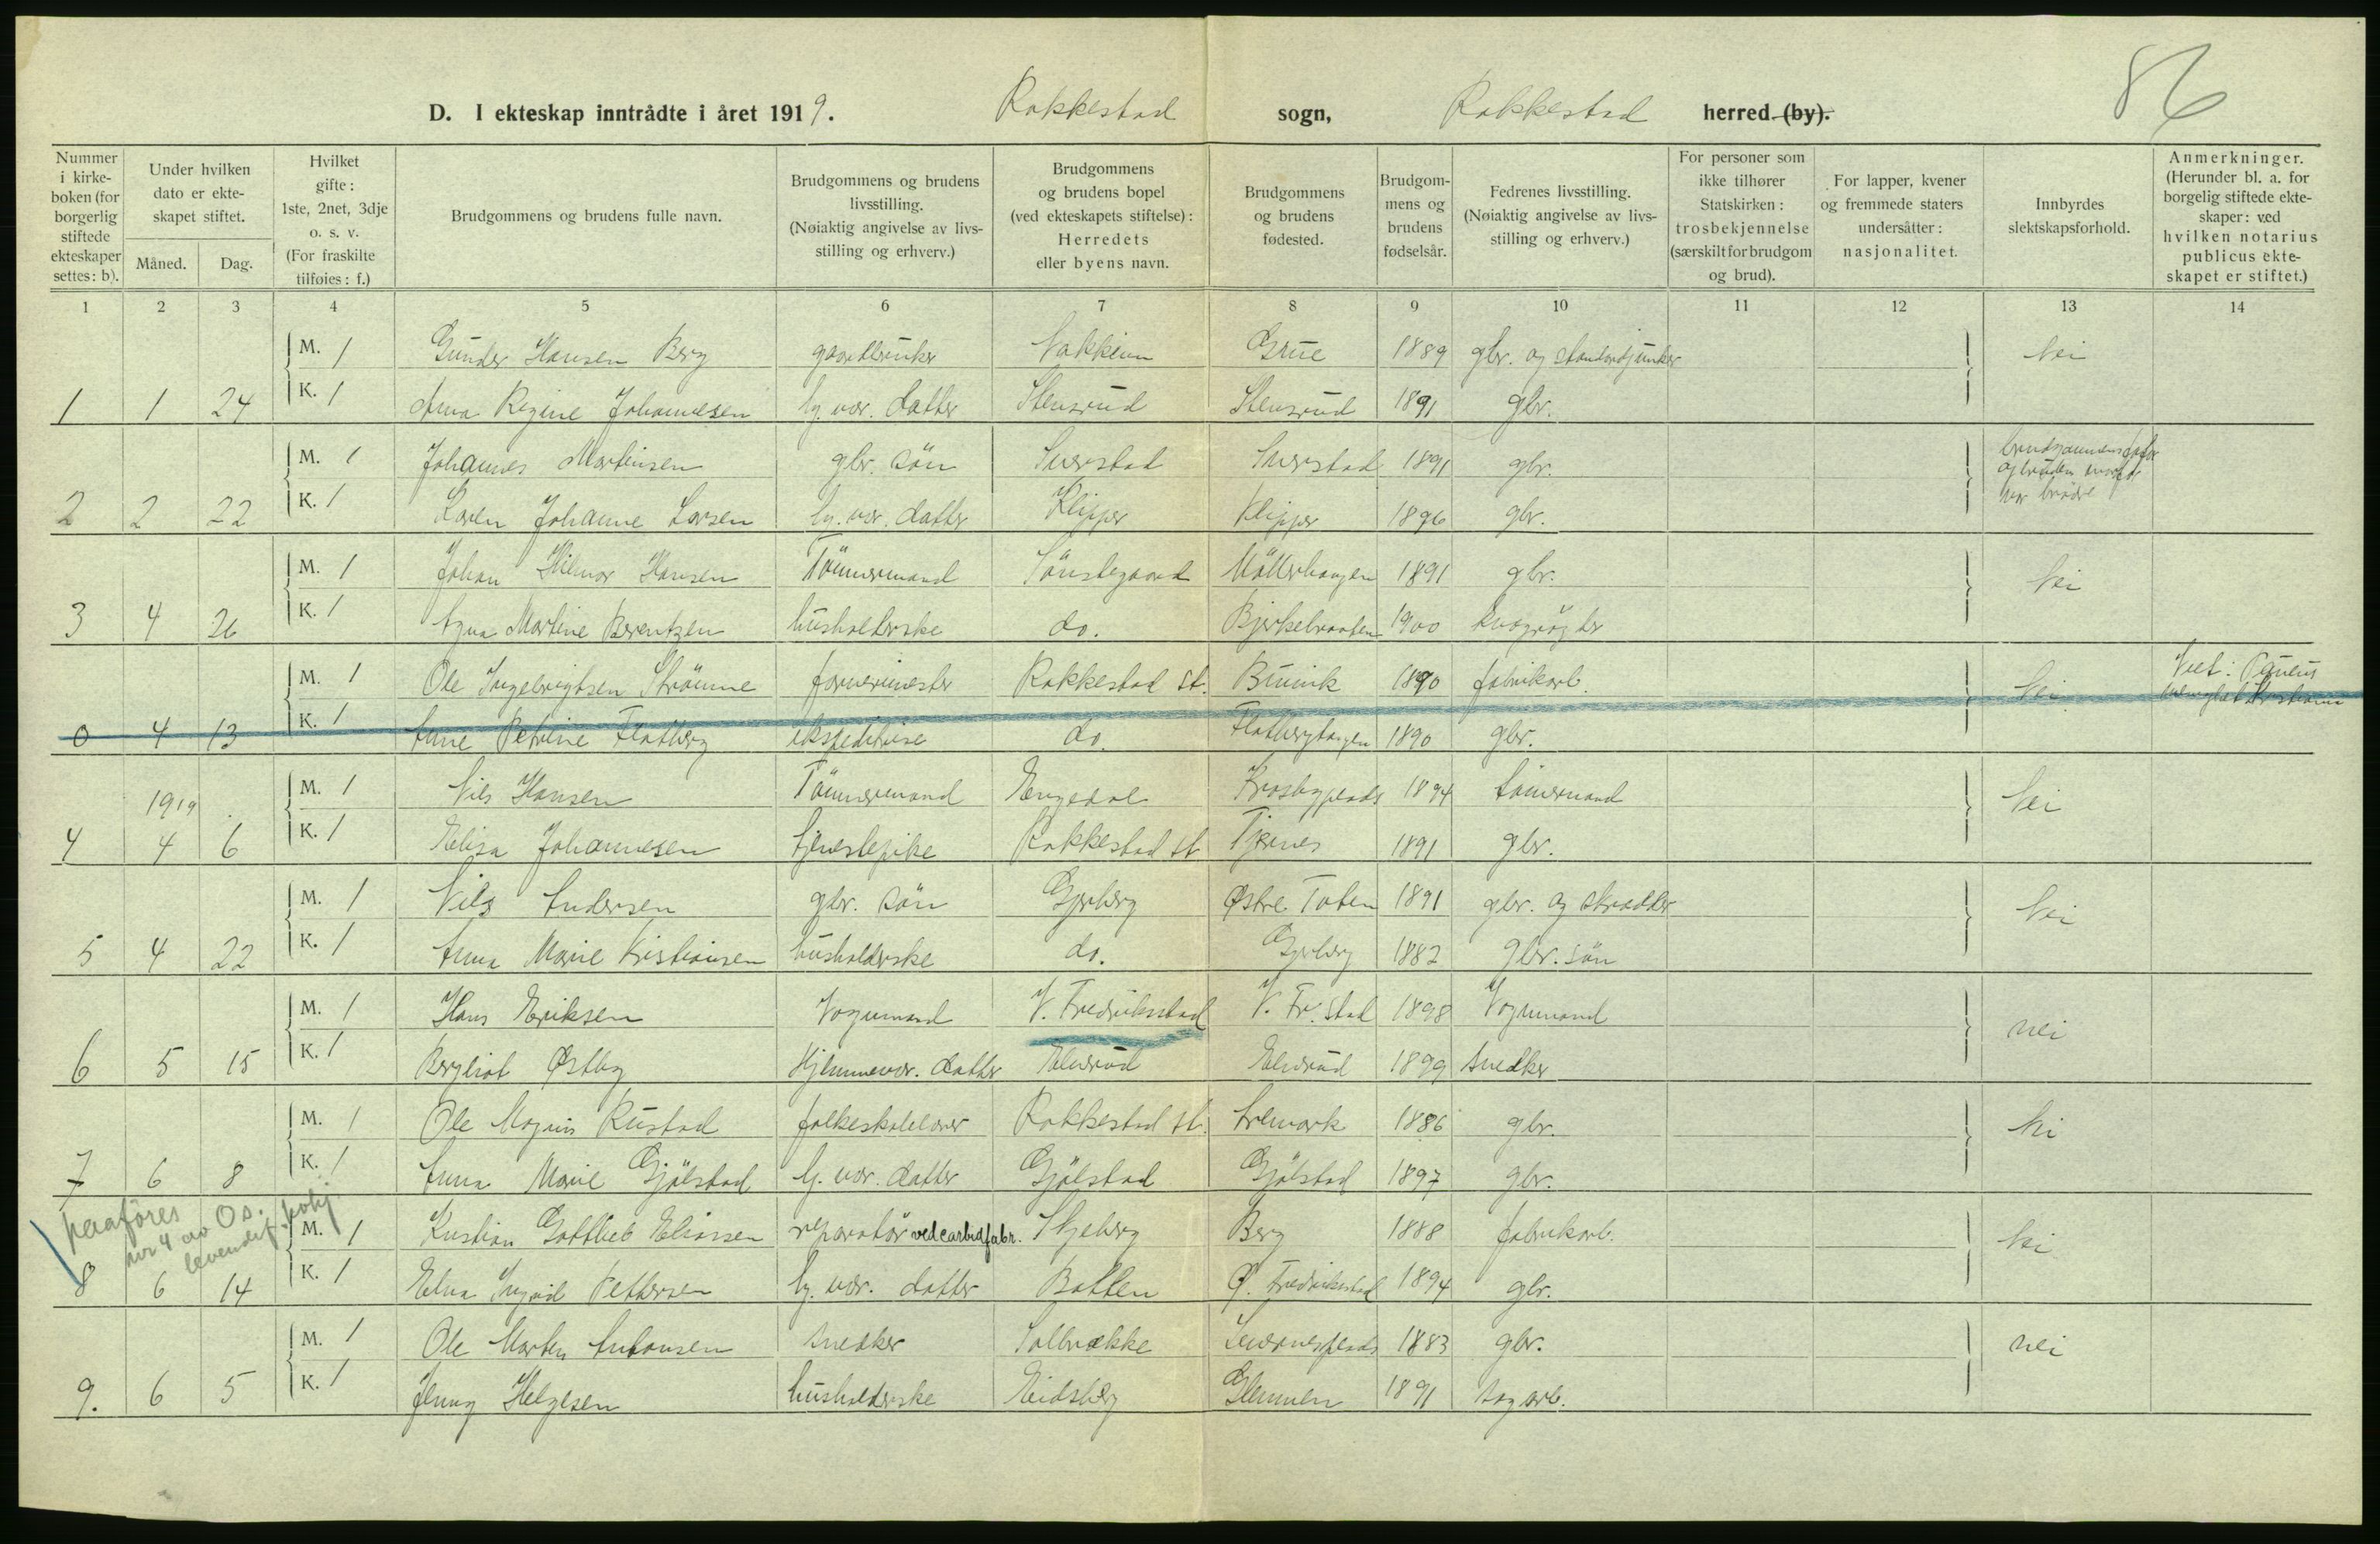 86
D. I ekteskap inntrådte i året 1919. Rakkestad sogn, Rakkestad herred (by).
Nummer i kirkeboken (for borgerlig stiftede ekteskaper settes: b).
Under hvilken dato er ekteskapet stiftet.
Måned.
Dag.
Hvilket gifte: 1ste, 2net, 3dje o. s. v. (For fraskilte tilføies: f.)
Brudgommens og brudens fulle navn.
Brudgommens og brudens livsstilling. (Nøiaktig angivelse av livsstilling og erhverv.)
Brudgommens og brudens bopel (ved ekteskapets stiftelse): Herredets eller byens navn.
Brudgommens og brudens fødested.
Brudgommens og brudens fødselsår.
Fedrenes livsstilling. (Nøiaktig angivelse av livsstilling og erhverv.)
For personer som ikke tilhører Statskirken: trosbekjennelse (særskilt for brudgom og brud).
For lapper, kvener og fremmede staters undersåtter: nasjonalitet.
Innbyrdes slektskapsforhold.
Anmerkninger. (Herunder bl. a. for borgelig stiftede ekteskaper: ved hvilken notarius publicus ekteskapet er stiftet.)
1 2 3 4 5 6 7 8 9 10 11 12 13 14
M. 1 Gunder Hansen Berg gaardbruker Nakkim Grue 1889 gbr. og Nei
1 1 24 K. 1 Anna Regine Johannesen hj. vær. datter Stensrud Stensrud 1891 gbr.
M. 1 Johannes Martinsen gbr. sön 1891 gbr. brudgommens fader og brudens morfar var brödre
2 2 22 K. 1 Karen Johanne Larsen hj. vær. datter Klipper Klipper 1896 gbr.
M. 1 Johan Hilmar Hansen Tömmermand Tönsbegaard Möllerhaugen 1891 gbr. Nei
3 4 26 K. 1 Agna Martine Berentzen husholderske do. Bjerkebraaten 1900
M. 1 Ole Ingebrigtsen Strömme formermester Rakkestad st. 1890 fabrikarb. Nei
0 4 13 K. 1 Anne Petrine Flatberg ekspeditrise do. Flatberghaugen 1890 gbr.
1919 M. 1 Nils Hansen Tömmermand Engedal Krosbyplads 1894 tömermand Nei
4 4 6 K. 1 Elisa Johannesen tjenestepike Rakkestad st Tjernes 1891 gbr.
M. 1 Nils Andersen gbr. sön Gjerberg Østre Toten 1891 gbr. og skrædder Nei
5 4 22 K. 1 Anna Marie Kristiansen husholderske do. Gjerberg 1882 gbr. sön
M. 1 Hans Eriksen Vognmand V. Fredrikstad V. Fr.stad 1898 Vognmand nei
6 5 15 K. 1 Bergliot Østby Hjemmevær. datter Elverud Elverud 1899 snedker
M. 1 Ole Magnus Rustad folkeskolelærer Rakkestad st. Aremark 1886 gbr. Nei
7 6 8 K. 1 Anna Marie Gjölstad hj. vær. datter Gjölstad Gjölstad 1897 gbr.
paaföres nr 4 av Os. levendef. prtkj
M. 1 Kristian Gottlieb Eliassen reparatör ved carbidfabr. Skjeberg Berg 1888 fabrikarb. Nei
8 6 14 K. 1 Elna Ingrid Pettersen hj. vær. datter Botten Ø. Fredrikstad 1894 gbr.
M. 1 Ole Marten Antonsen snedker Solbrække 1883 gbr. nei
9. 6 5 K. 1 Jenny Helgesen husholderske Eidsberg Glemmen 1891 sagarb.